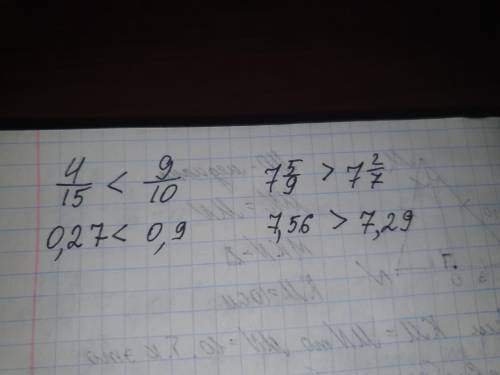 4/15 < 9/10
7 5/9 > 7 2/7
0,27 < 0,9
7,56 > 7,29